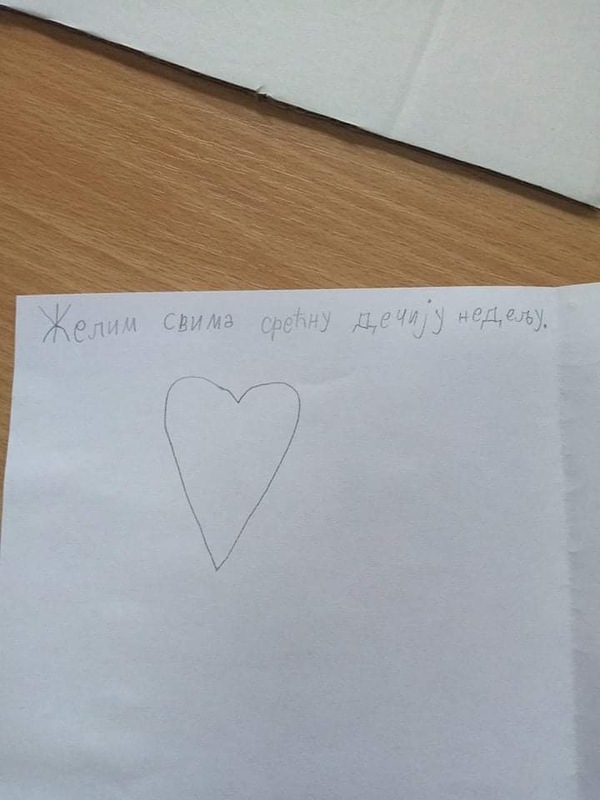 Желим свима срећну дечију недељу.